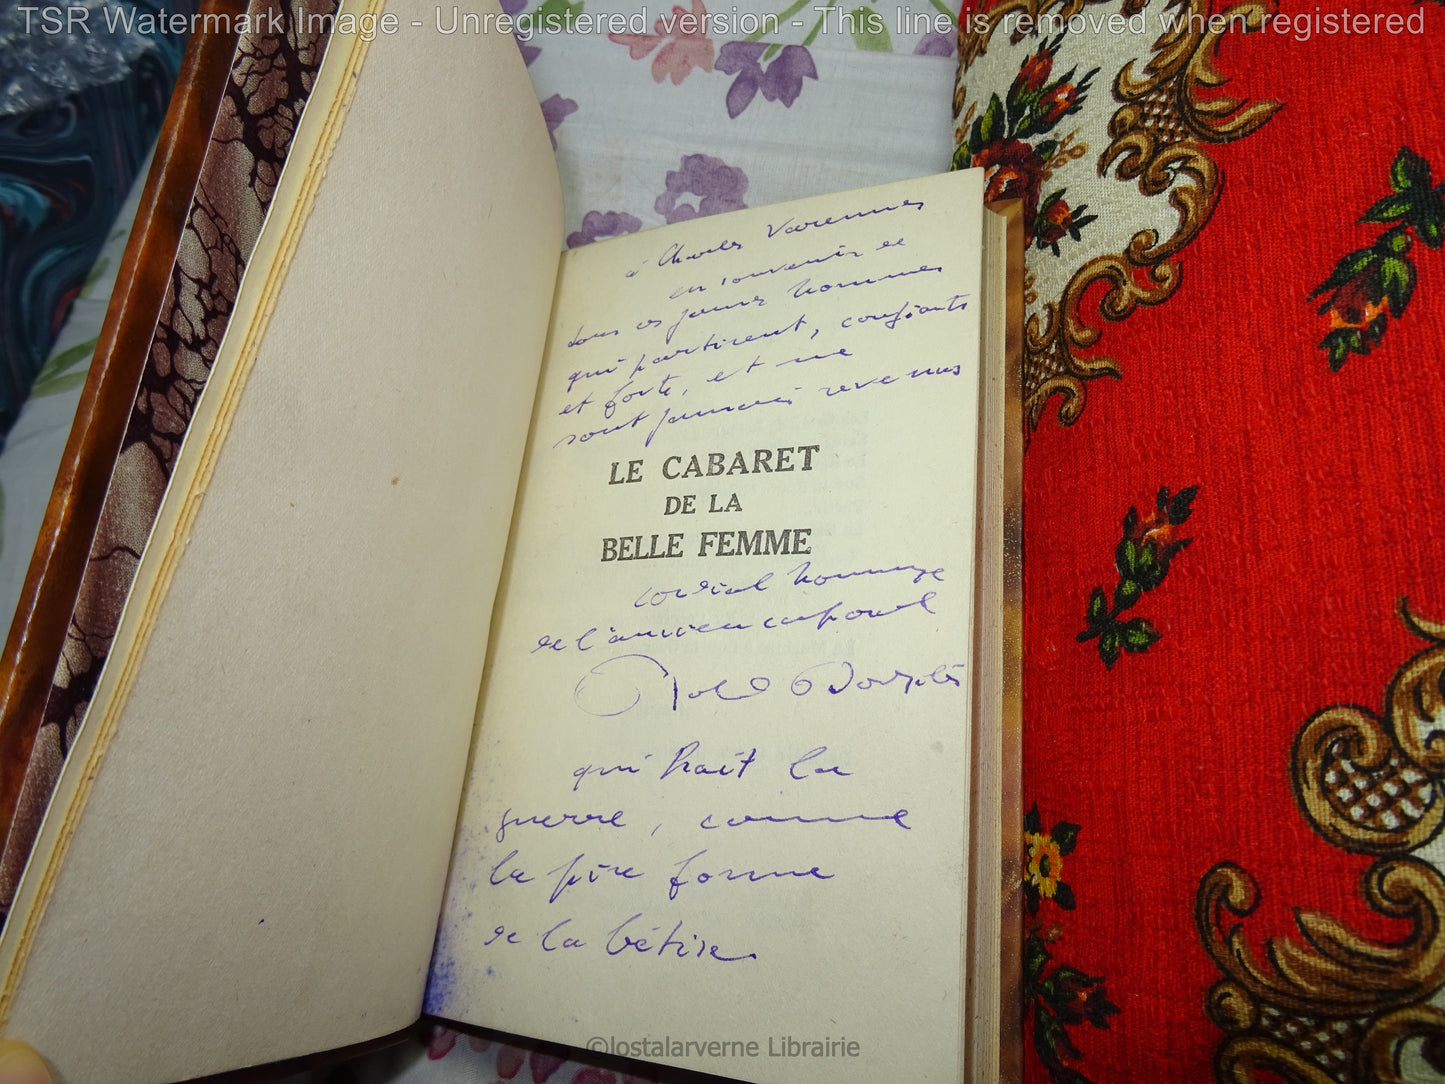 TSR Watermark Image - Unregistered version - This line is removed when registered
à Charles Varennes
en souvenir de
tous ces jeunes hommes
qui partirent, confiants
et forts, et ne
sont jamais revenus
LE CABARET
DE LA
BELLE FEMME
cordial hommage
de l'ancien caporal
Roland Dorgelès
qui hait la
guerre, comme
la pire forme
de la bêtise
©lostalarverne Librairie